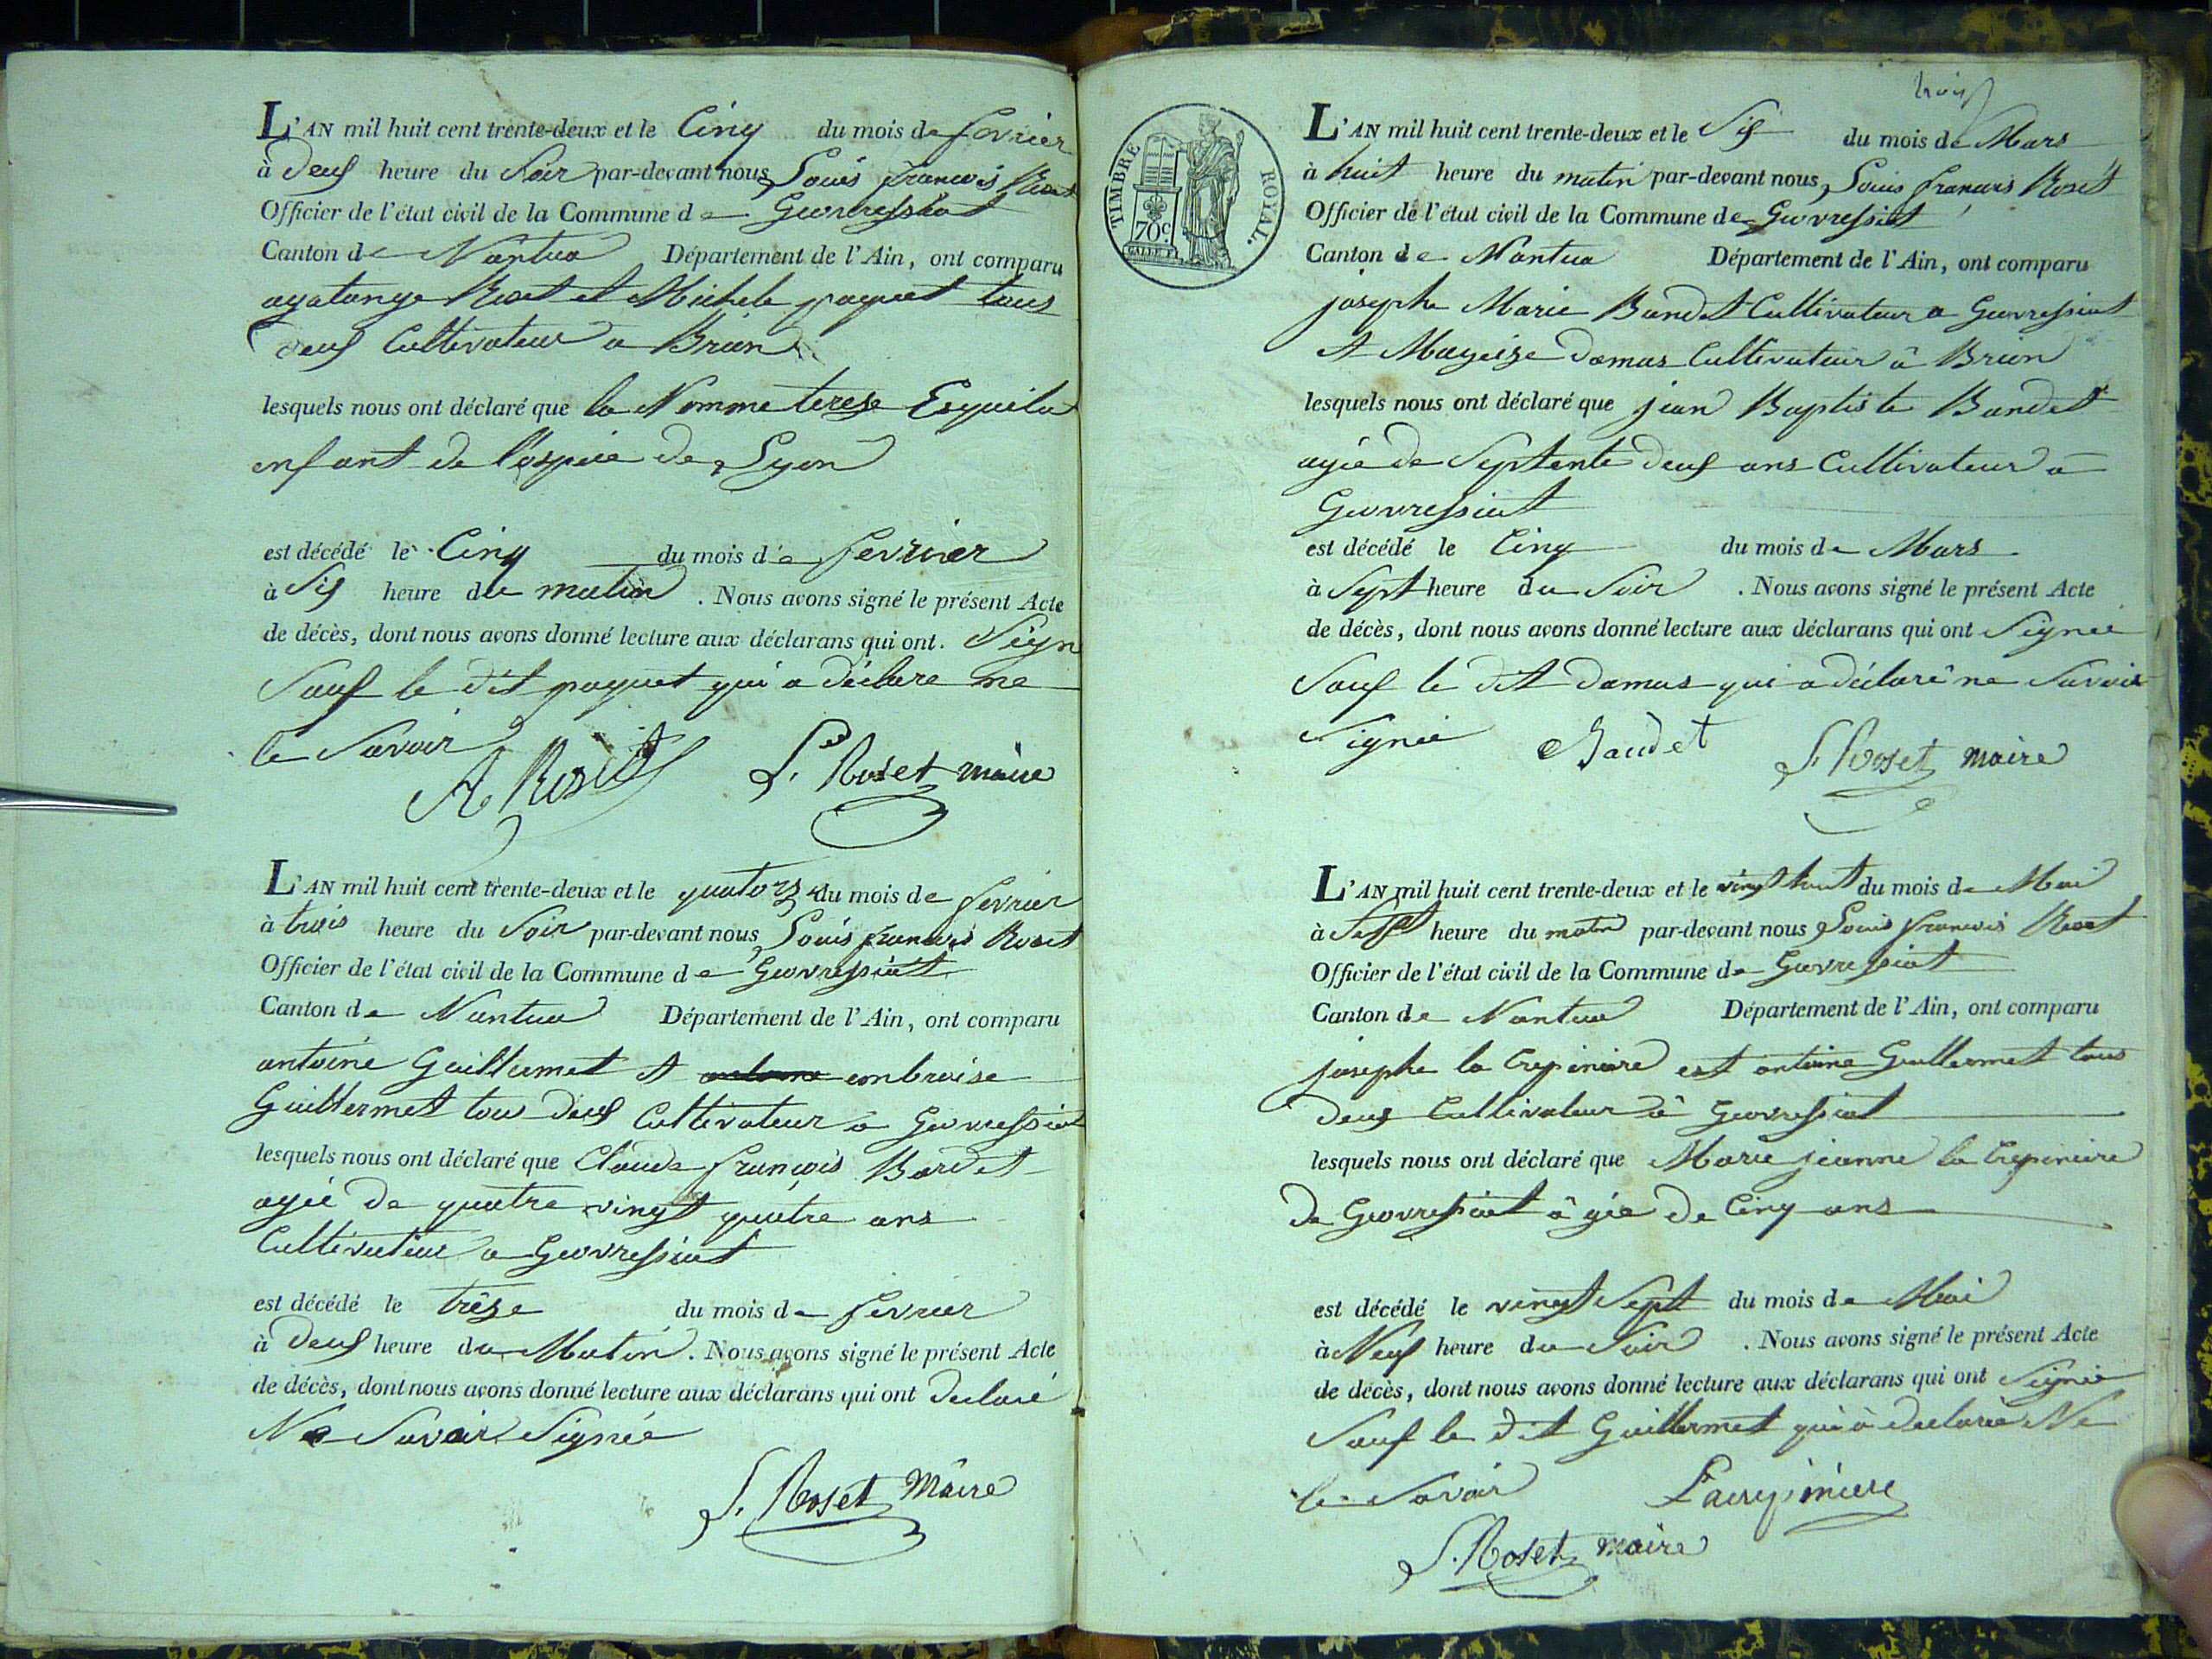 L'AN mil huit cent trente-deux et le Cinq du mois de fevrier
à deus heure du Soir par-devant nous, Louis francois Roset
Officier de l'état civil de la Commune de Geovressiat
Canton de Nantua Département de l'Ain, ont comparu
agatange Roset et Michele paquet tous
deus Cultivateur a Brion
lesquels nous ont déclaré que la Nomme terese Esquila
enfant de l'ospice de Lyon
est décédé le Cinq du mois de fevrier
à Sis heure du matin . Nous avons signé le présent Acte
de décès, dont nous avons donné lecture aux déclarans qui ont. Sign
Sauf le dit paquet qui a déclare ne
le Savoir
A Roset Ls Roset maire
L'AN mil huit cent trente-deux et le quatorze du mois de fevrier
à trois heure du Soir par-devant nous, Louis francois Roset
Officier de l'état civil de la Commune de Geovressiat
Canton de Nantua Département de l'Ain, ont comparu
antoine Guillermet et antoine embroise
Guillermet tou deus Cultivateur a Geovressiat
lesquels nous ont déclaré que Claude françois Bardet
agié de quatre vingt quatre ans
Cultivateur a Geovressiat
est décédé le trêse du mois de fevrier
à deus heure du Matin . Nous avons signé le présent Acte
de décès, dont nous avons donné lecture aux déclarans qui ont declaré
Ne Savoir Signée
L. Roset Maire
trois
TIMBRE ROYAL.
70c.
L'AN mil huit cent trente-deux et le Sis du mois de Mars
à huit heure du matin par-devant nous, Louis français Roset
Officier de l'état civil de la Commune de Geovressiat
Canton de Nantua Département de l'Ain, ont comparu
josephe Marie Baudet Cultivateur a Geovressiat
et Mogeize damas Cultivateur â Brion
lesquels nous ont déclaré que jean Baptiste Baudet
agie de Septente deus ans Cultivateur a
Geovressiat
est décédé le Cinq du mois de Mars
à Sept heure du Soir . Nous avons signé le présent Acte
de décès, dont nous avons donné lecture aux déclarans qui ont Signée
Sauf le dit damas qui a déclaré ne Savoir
Signée Baudet L. Roset maire
L'AN mil huit cent trente-deux et le vingt huit du mois de Mai
à Sept heure du matin par-devant nous Louis francois Roset
Officier de l'état civil de la Commune de Geovressiat
Canton de Nantua Département de l'Ain, ont comparu
josephe la Crepinière est antoine Guillermet tous
deus Cultivateur â Geovressiat
lesquels nous ont déclaré que Marie jeanne la Crepiniere
de Geovressiat â gée de Cinq ans
est décédé le vingt Sept du mois de Mai
à Neuf heure du Soir . Nous avons signé le présent Acte
de décès, dont nous avons donné lecture aux déclarans qui ont Signée
Sauf le dit Guillermet qui à declaré Ne
le Savoir Lacrepiniere
L. Roset maire